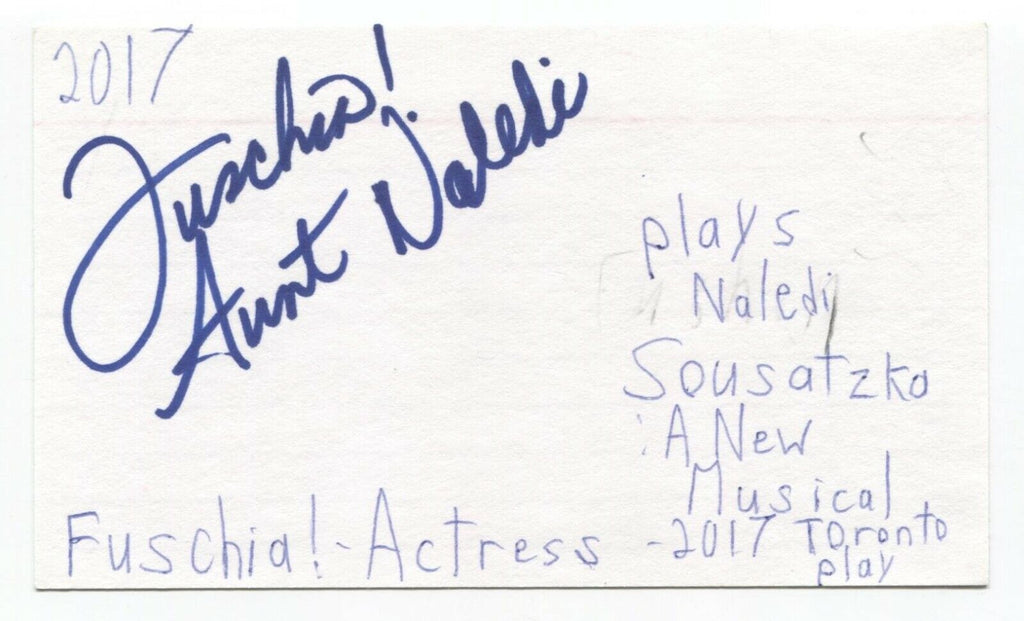 2017
Fuschia!
Aunt Naledi
plays
Naledi
Sousatzka
: A New
Musical
Fuschia! - Actress - 2017 Toronto
play